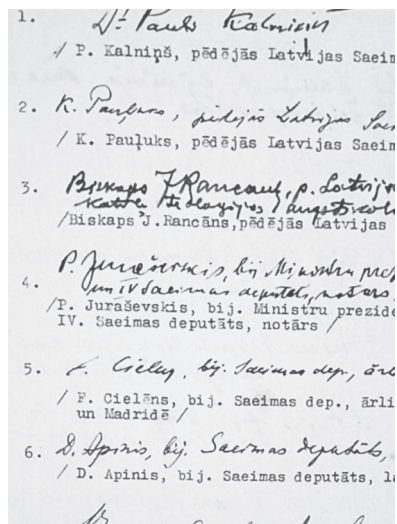 1. Dr. Pauls Kalniņš
/ P. Kalniņš, pēdējās Latvijas Saeim
2. K. Pauļuks, pēdejās Latvijas Saei
/ K. Pauļuks, pēdējās Latvijas Saeim
3. Biskaps J Rancans, p. Latvijas
/Biskaps J.Rancāns,pēdējās Latvijas
4. P. Juraševskis, bij Ministru pref
un IV Saeimas deputāts, notārs
/P. Juraševskis, bij. Ministru prezide
IV. Saeimas deputāts, notārs /
5. F. Cielēns, bij. Saeimas dep., ārl
/ F. Cielēns, bij. Saeimas dep., ārli
un Madridē /
6. D. Apinis, bij. Saeimas deputāts,
/ D. Apinis, bij. Saeimas deputāts, la